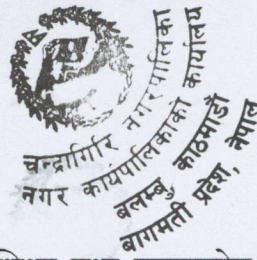 चन्द्रागिरि नगरपालिका
नगर कार्यपालिकाको कार्यालय
बलम्बु, काठमाडौं
बागमती प्रदेश, नेपाल